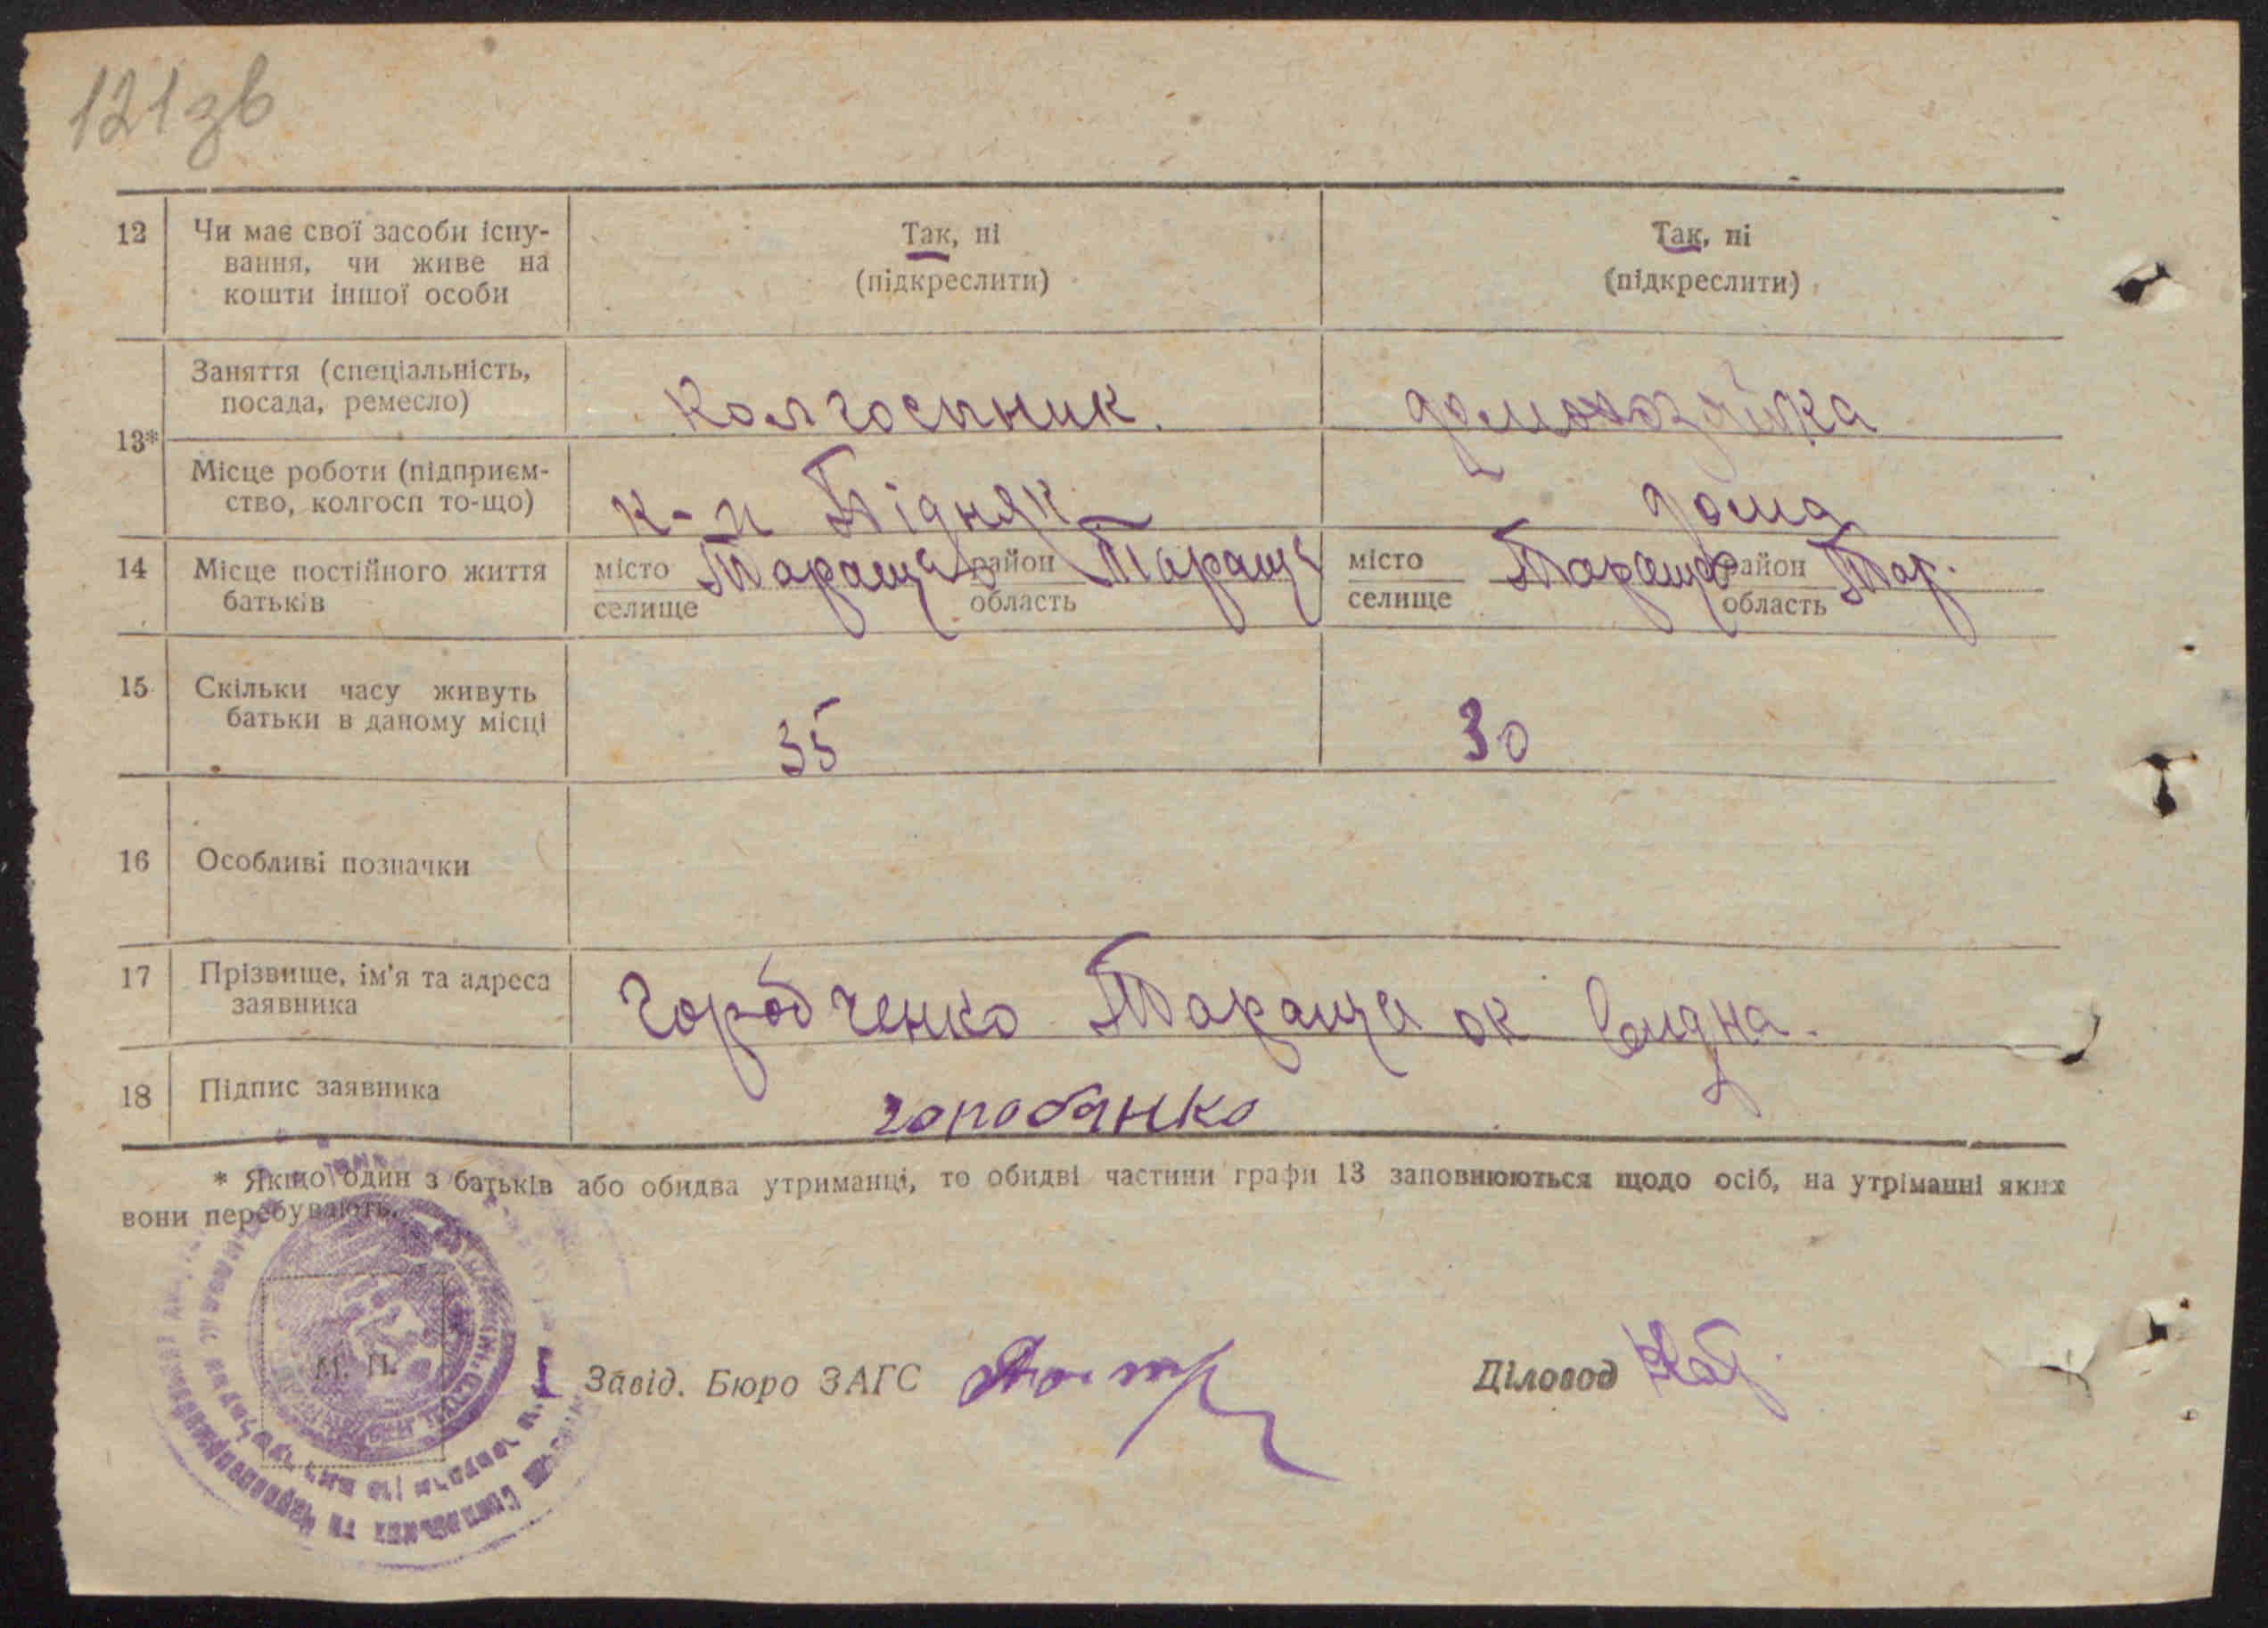 121зв
12 Чи має свої засоби існу- Так, ні Так, ні
вання, чи живе на (підкреслити) (підкреслити)
кошти іншої особи
13* Заняття (спеціальність, колгоспник. домохозяйка
посада, ремесло)
Місце роботи (підприєм- дома
ство, колгосп то-що)
14 Місце постійного життя місто Тараща район Тараща місто Тараща район Тар.
батьків селище область селище область
15 Скільки часу живуть 35 30
батьки в даному місці
16 Особливі позначки
17 Прізвище, ім'я та адреса Тараща
заявника
18 Підпис заявника
* Якщо один з батьків або обидва утриманці, то обидві частини графи 13 заповнюються щодо осіб, на утріманні яких
вони перебувають.
М. П.
Завід. Бюро ЗАГС Діловод